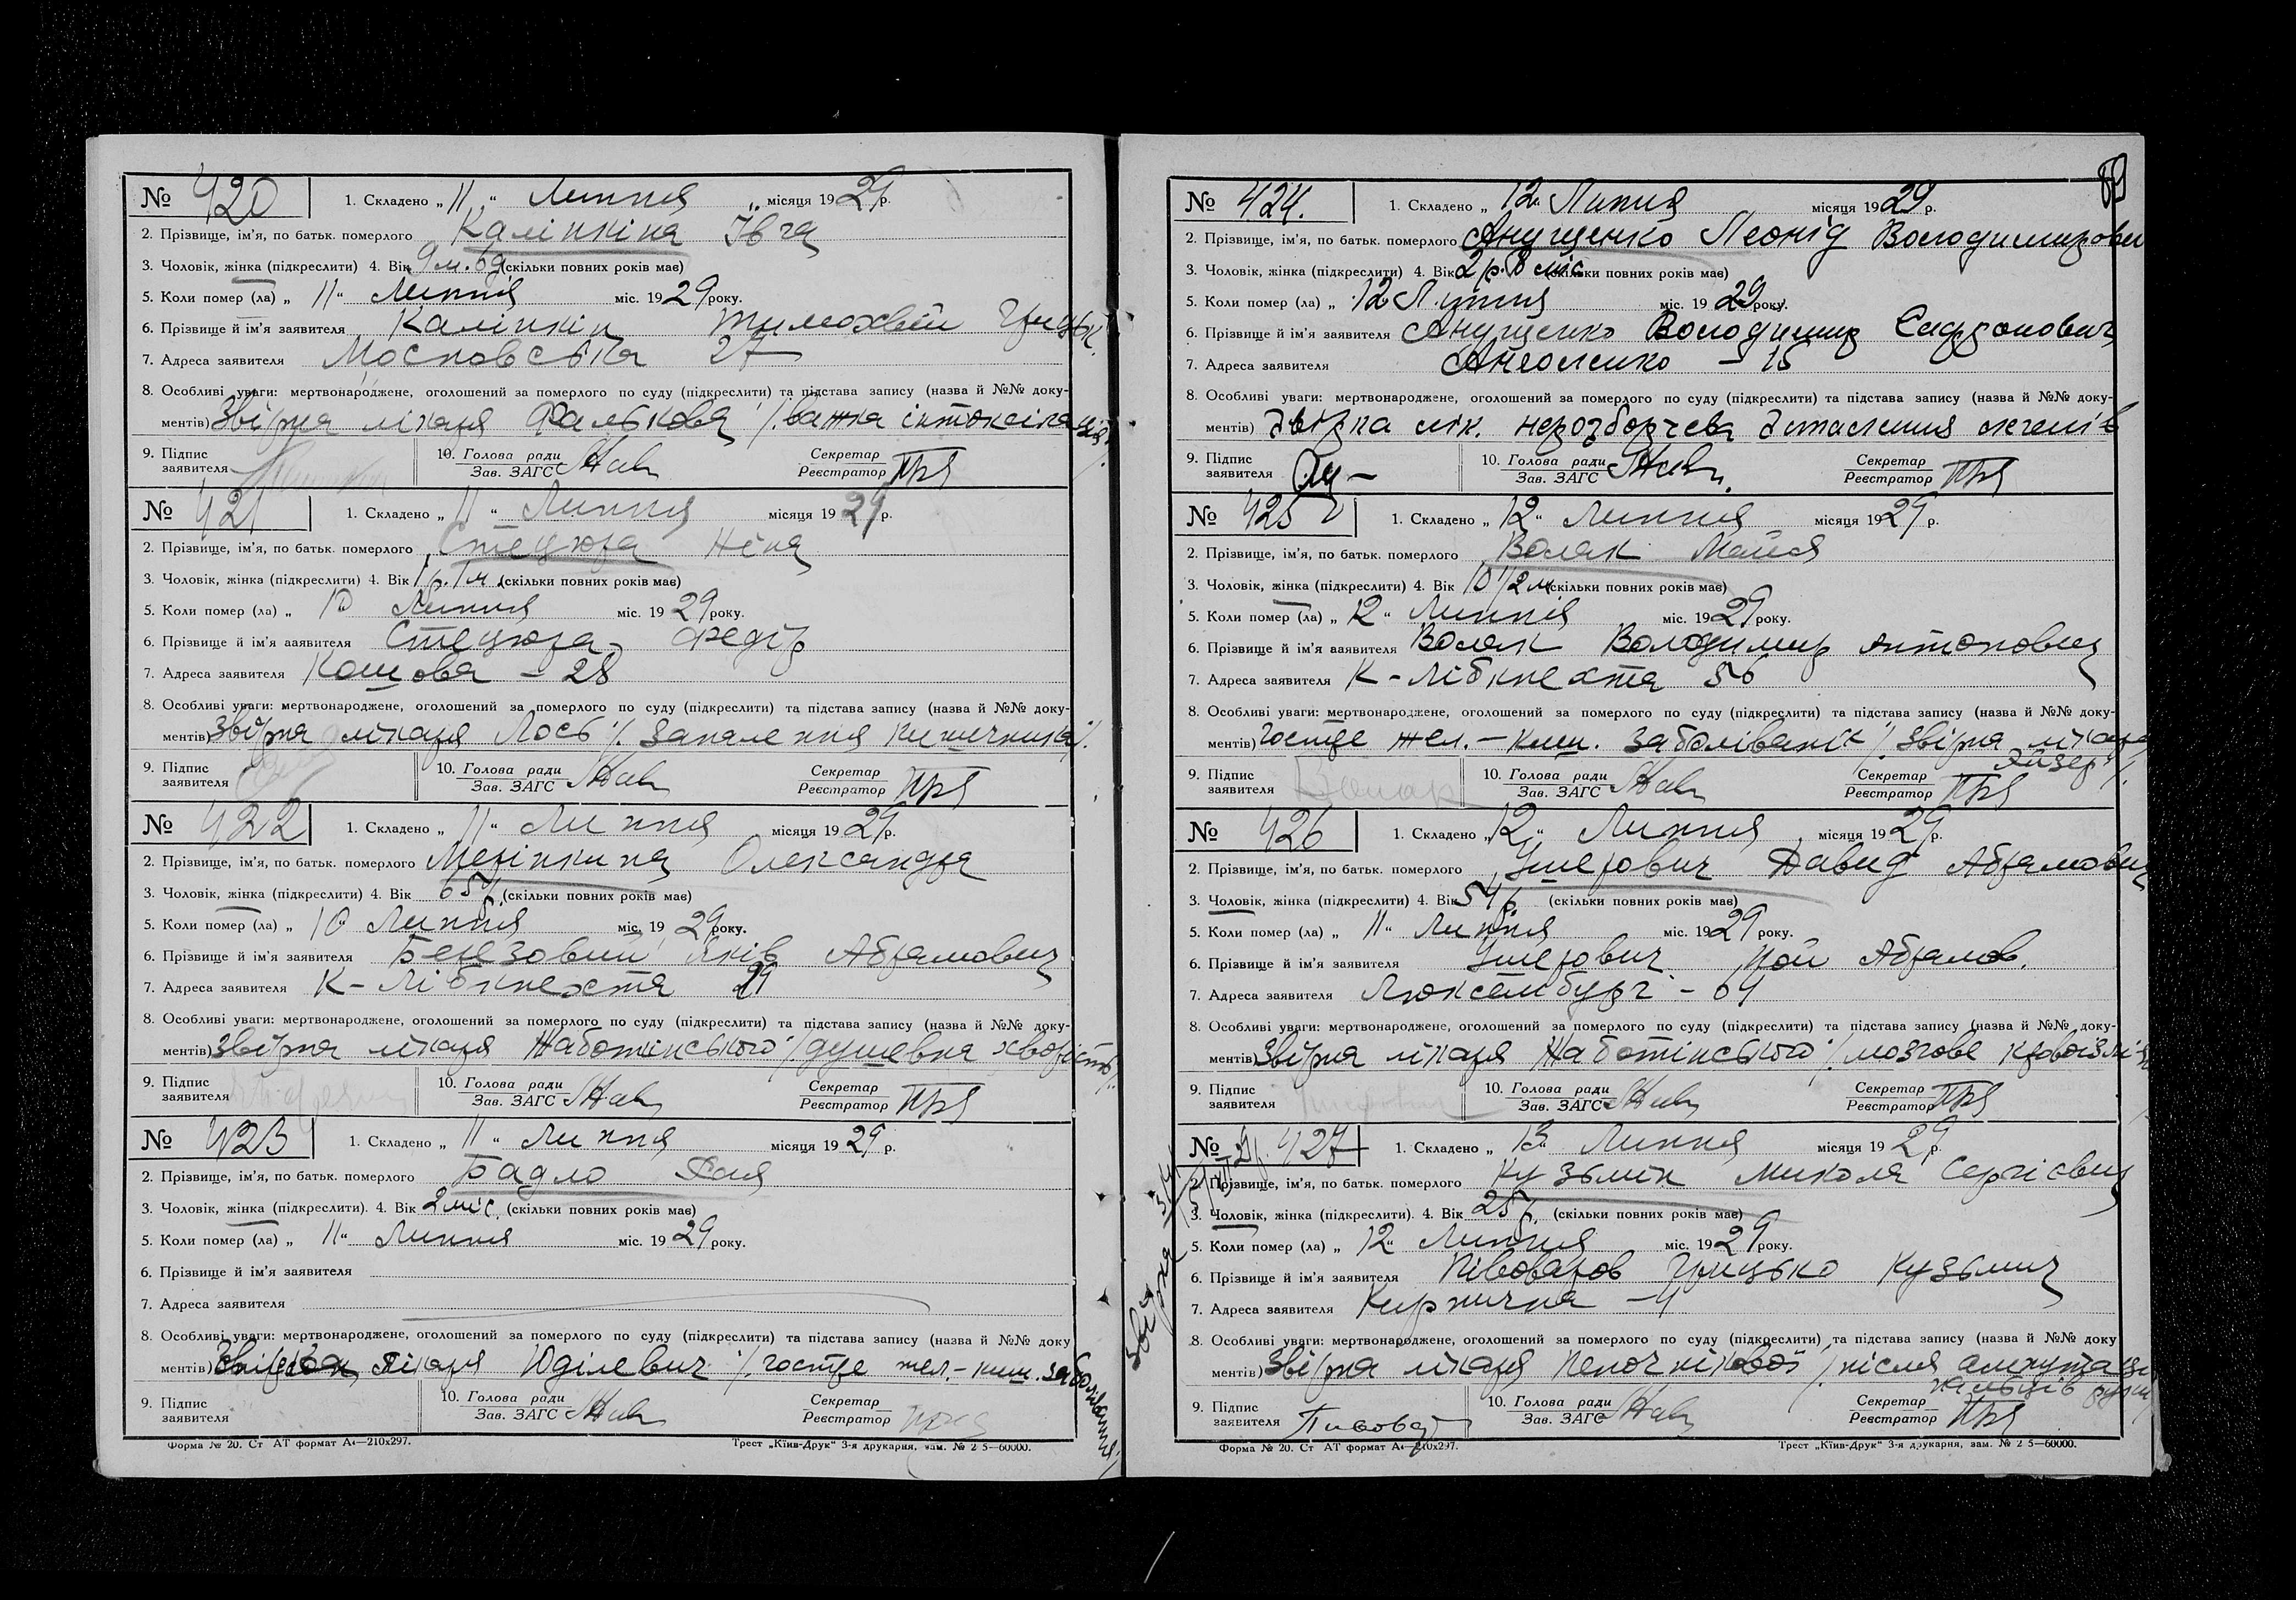 № 420 1. Складено „ 11 “ Липня „ місяця 1929 р.
2. Прізвище, ім'я, по батьк. померлого Калінкіна
3. Чоловік, жінка (підкреслити) 4. Вік 9 м. 6 д. (скільки повних років має)
5. Коли помер (ла) „ 11 “ Липня міс. 1929 року.
6. Прізвище й ім'я заявителя Калінкін Тимохвій
7. Адреса заявителя Московська 27
8. Особливі уваги: мертвонароджене, оголошений за померлого по суду (підкреслити) та підстава запису (назва й №№ доку-
ментів) Звідка лікаря Фалькова /. важка інтоксікація /.
9. Підпис заявителя 10. Голова ради Зав. ЗАГС Секретар Реєстратор
№ 421 1. Складено „ 11 “ Липня місяця 1929 р.
2. Прізвище, ім'я, по батьк. померлого Стецюра Ніна
3. Чоловік, жінка (підкреслити) 4. Вік 1 р. 1 м. (скільки повних років має)
5. Коли помер (ла) „ 10 Липня міс. 1929 року.
6. Прізвище й ім'я заявителя Стецюра Федір
7. Адреса заявителя Кошова – 28
8. Особливі уваги: мертвонароджене, оголошений за померлого по суду (підкреслити) та підстава запису (назва й №№ доку-
ментів) Звідка лікаря Лось /. Запалення кишечника /.
9. Підпис заявителя 10. Голова ради Зав. ЗАГС Секретар Реєстратор
№ 422 1. Складено „ 11 “ Липня місяця 1929 р.
2. Прізвище, ім'я, по батьк. померлого Олександра
3. Чоловік, жінка (підкреслити) 4. Вік 65 р. (скільки повних років має)
5. Коли помер (ла) „ 10 Липня міс. 1929 року.
6. Прізвище й ім'я заявителя Березовий Яків Абрамович
7. Адреса заявителя К – Лібкнехта 29
8. Особливі уваги: мертвонароджене, оголошений за померлого по суду (підкреслити) та підстава запису (назва й №№ доку-
ментів) Звідка лікаря Жаботінського /. душевна хворість /.
9. Підпис заявителя 10. Голова ради Зав. ЗАГС Секретар Реєстратор
№ 423 1. Складено „ 11 “ Липня місяця 1929 р.
2. Прізвище, ім'я, по батьк. померлого Бадло
3. Чоловік, жінка (підкреслити). 4. Вік 2 міс. (скільки повних років має)
5. Коли помер (ла) „ 11 “ Липня міс. 1929 року.
6. Прізвище й ім'я заявителя
7. Адреса заявителя
8. Особливі уваги: мертвонароджене, оголошений за померлого по суду (підкреслити) та підстава запису (назва й №№ доку
ментів) лікаря Юділевич /. гостре жел.–киш. заболівання /.
9. Підпис заявителя 10. Голова ради Зав. ЗАГС Секретар Реєстратор
Форма № 20. Ст АТ формат А4—210х297. Трест „Київ-Друк“ 3-я друкарня, зам. № 2 5—60000.
№ 424. 1. Складено „ 12 “ Липня місяця 1929 р.
2. Прізвище, ім'я, по батьк. померлого Анущенко Леонід Володимирович
3. Чоловік, жінка (підкреслити) 4. Вік 2 р. 8 міс (скільки повних років має)
5. Коли помер (ла) „ 12 Липня міс. 1929 року.
6. Прізвище й ім'я заявителя Анущенко Володимир
7. Адреса заявителя – 15
8. Особливі уваги: мертвонароджене, оголошений за померлого по суду (підкреслити) та підстава запису (назва й №№ доку-
ментів) Звідка лік. нерозборчева Запалення легенів
9. Підпис заявителя 10. Голова ради Зав. ЗАГС Секретар Реєстратор
№ 425 1. Складено „ 12 “ Липня місяця 1929 р.
2. Прізвище, ім'я, по батьк. померлого Воляк Майя
3. Чоловік, жінка (підкреслити) 4. Вік 10 1/2 м. (скільки повних років має)
5. Коли помер (ла) „ 12 “ Липня міс. 1929 року.
6. Прізвище й ім'я заявителя Воляк Володимир Антонович
7. Адреса заявителя К – Лібкнехта 56
8. Особливі уваги: мертвонароджене, оголошений за померлого по суду (підкреслити) та підстава запису (назва й №№ доку-
ментів) Гостре жел.–киш. заболіваніє /. Звідка лікаря
Айзер /.
9. Підпис заявителя 10. Голова ради Зав. ЗАГС Секретар Реєстратор
№ 426 1. Складено „ 12 “ Липня місяця 1929 р.
2. Прізвище, ім'я, по батьк. померлого Ушерович Давид Абрамович
3. Чоловік, жінка (підкреслити) 4. Вік 54 р. (скільки повних років має)
5. Коли помер (ла) „ 11 “ Липня міс. 1929 року.
6. Прізвище й ім'я заявителя Ушерович Абрамов.
7. Адреса заявителя Люксембург – 64
8. Особливі уваги: мертвонароджене, оголошений за померлого по суду (підкреслити) та підстава запису (назва й №№ доку-
ментів) Звідка лікаря Жаботінського /. мозгове
9. Підпис заявителя 10. Голова ради Зав. ЗАГС Секретар Реєстратор
№ 427 1. Складено „ 13 “ Липня місяця 1929 р.
2. Прізвище, ім'я, по батьк. померлого Кузьмін Микола Сергієвич
3. Чоловік, жінка (підкреслити). 4. Вік 25 р. (скільки повних років має)
5. Коли помер (ла) „ 12 “ Липня міс. 1929 року.
6. Прізвище й ім'я заявителя Півоваров Грицько Кузьмич
7. Адреса заявителя Кирпична – 4
8. Особливі уваги: мертвонароджене, оголошений за померлого по суду (підкреслити) та підстава запису (назва й №№ доку
ментів) Звідка лікаря /. після ампутаці
пальців руки
9. Підпис заявителя 10. Голова ради Зав. ЗАГС Секретар Реєстратор
Форма № 20. Ст АТ формат А4—210х297. Трест „Київ-Друк“ 3-я друкарня, зам. № 2 5—60000.